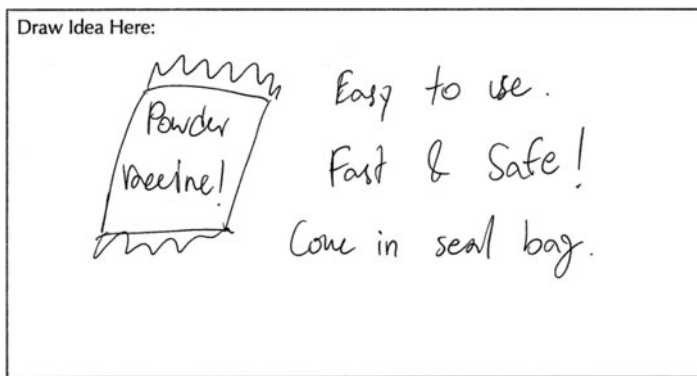 Draw Idea Here:
Powder
vaccine!
Easy to use.
Fast & Safe!
Come in seal bag.